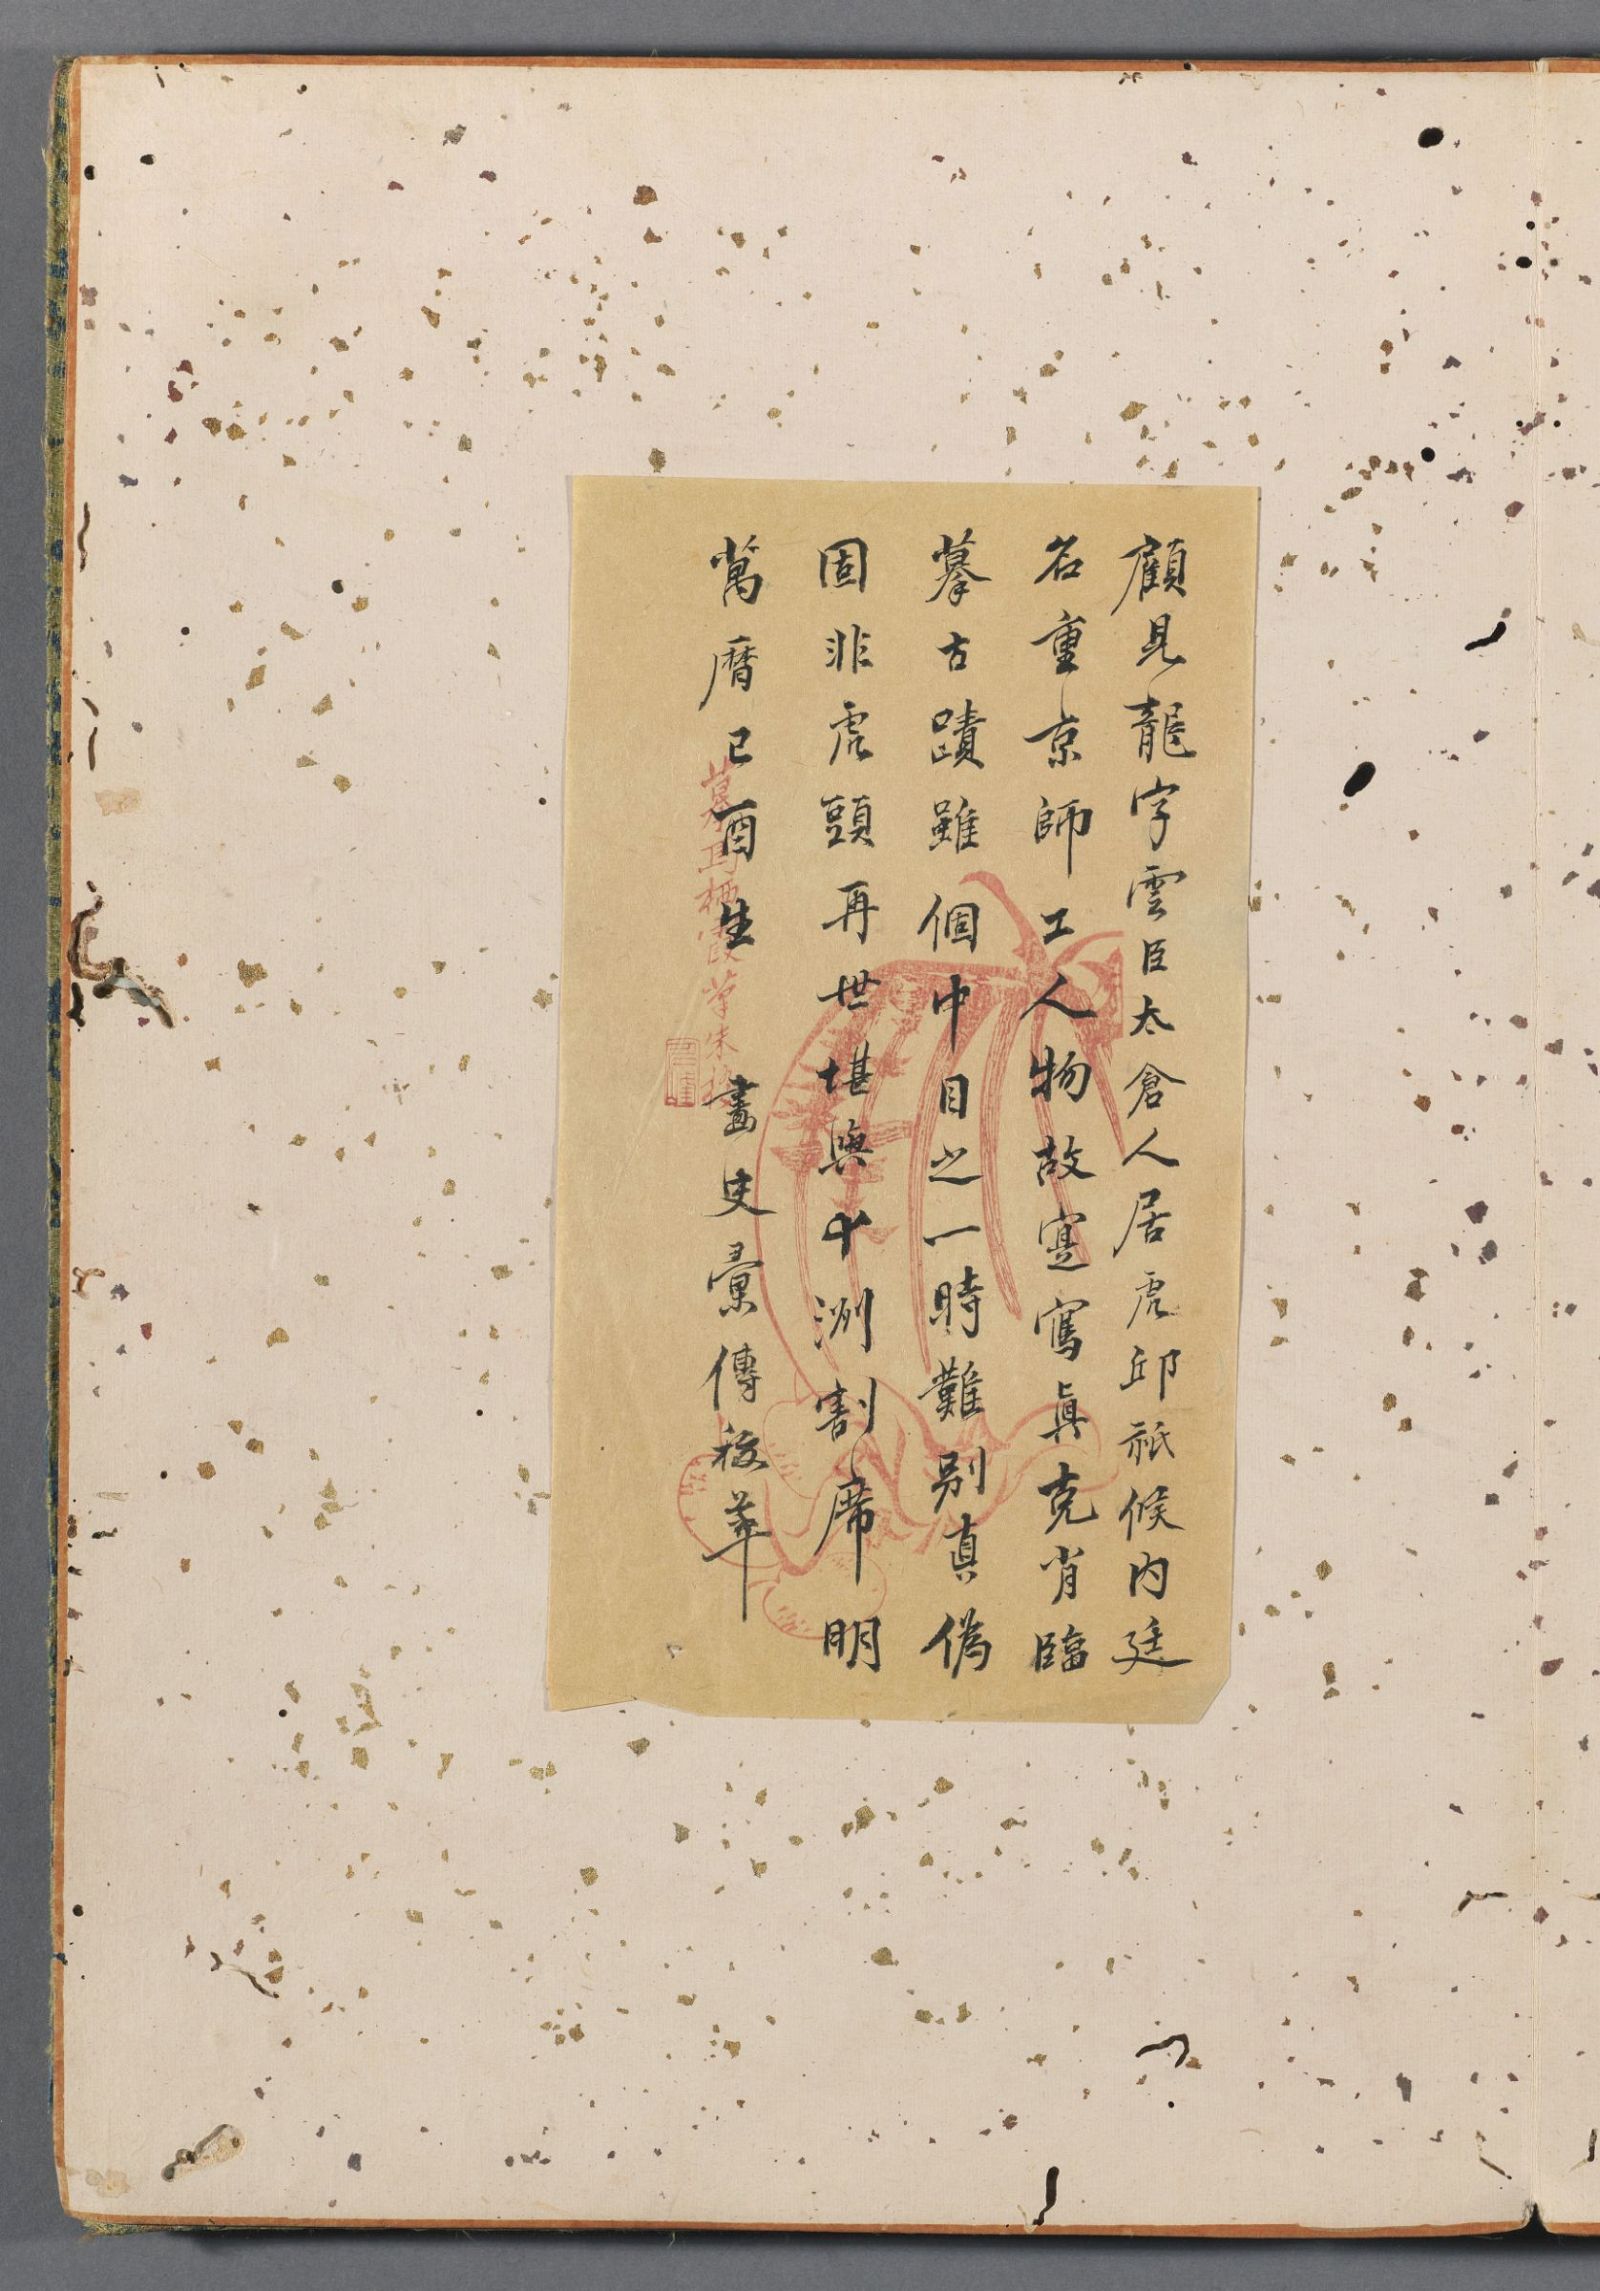 顧見龍字雲臣太倉人居虎邱祇候内廷
名重京師工人物故寔寫眞克肖臨
摹古蹟雖個中目之一時難别真偽
固非虎頭再世堪與十洲割席明
萬曆己酉生 畫史彙傳